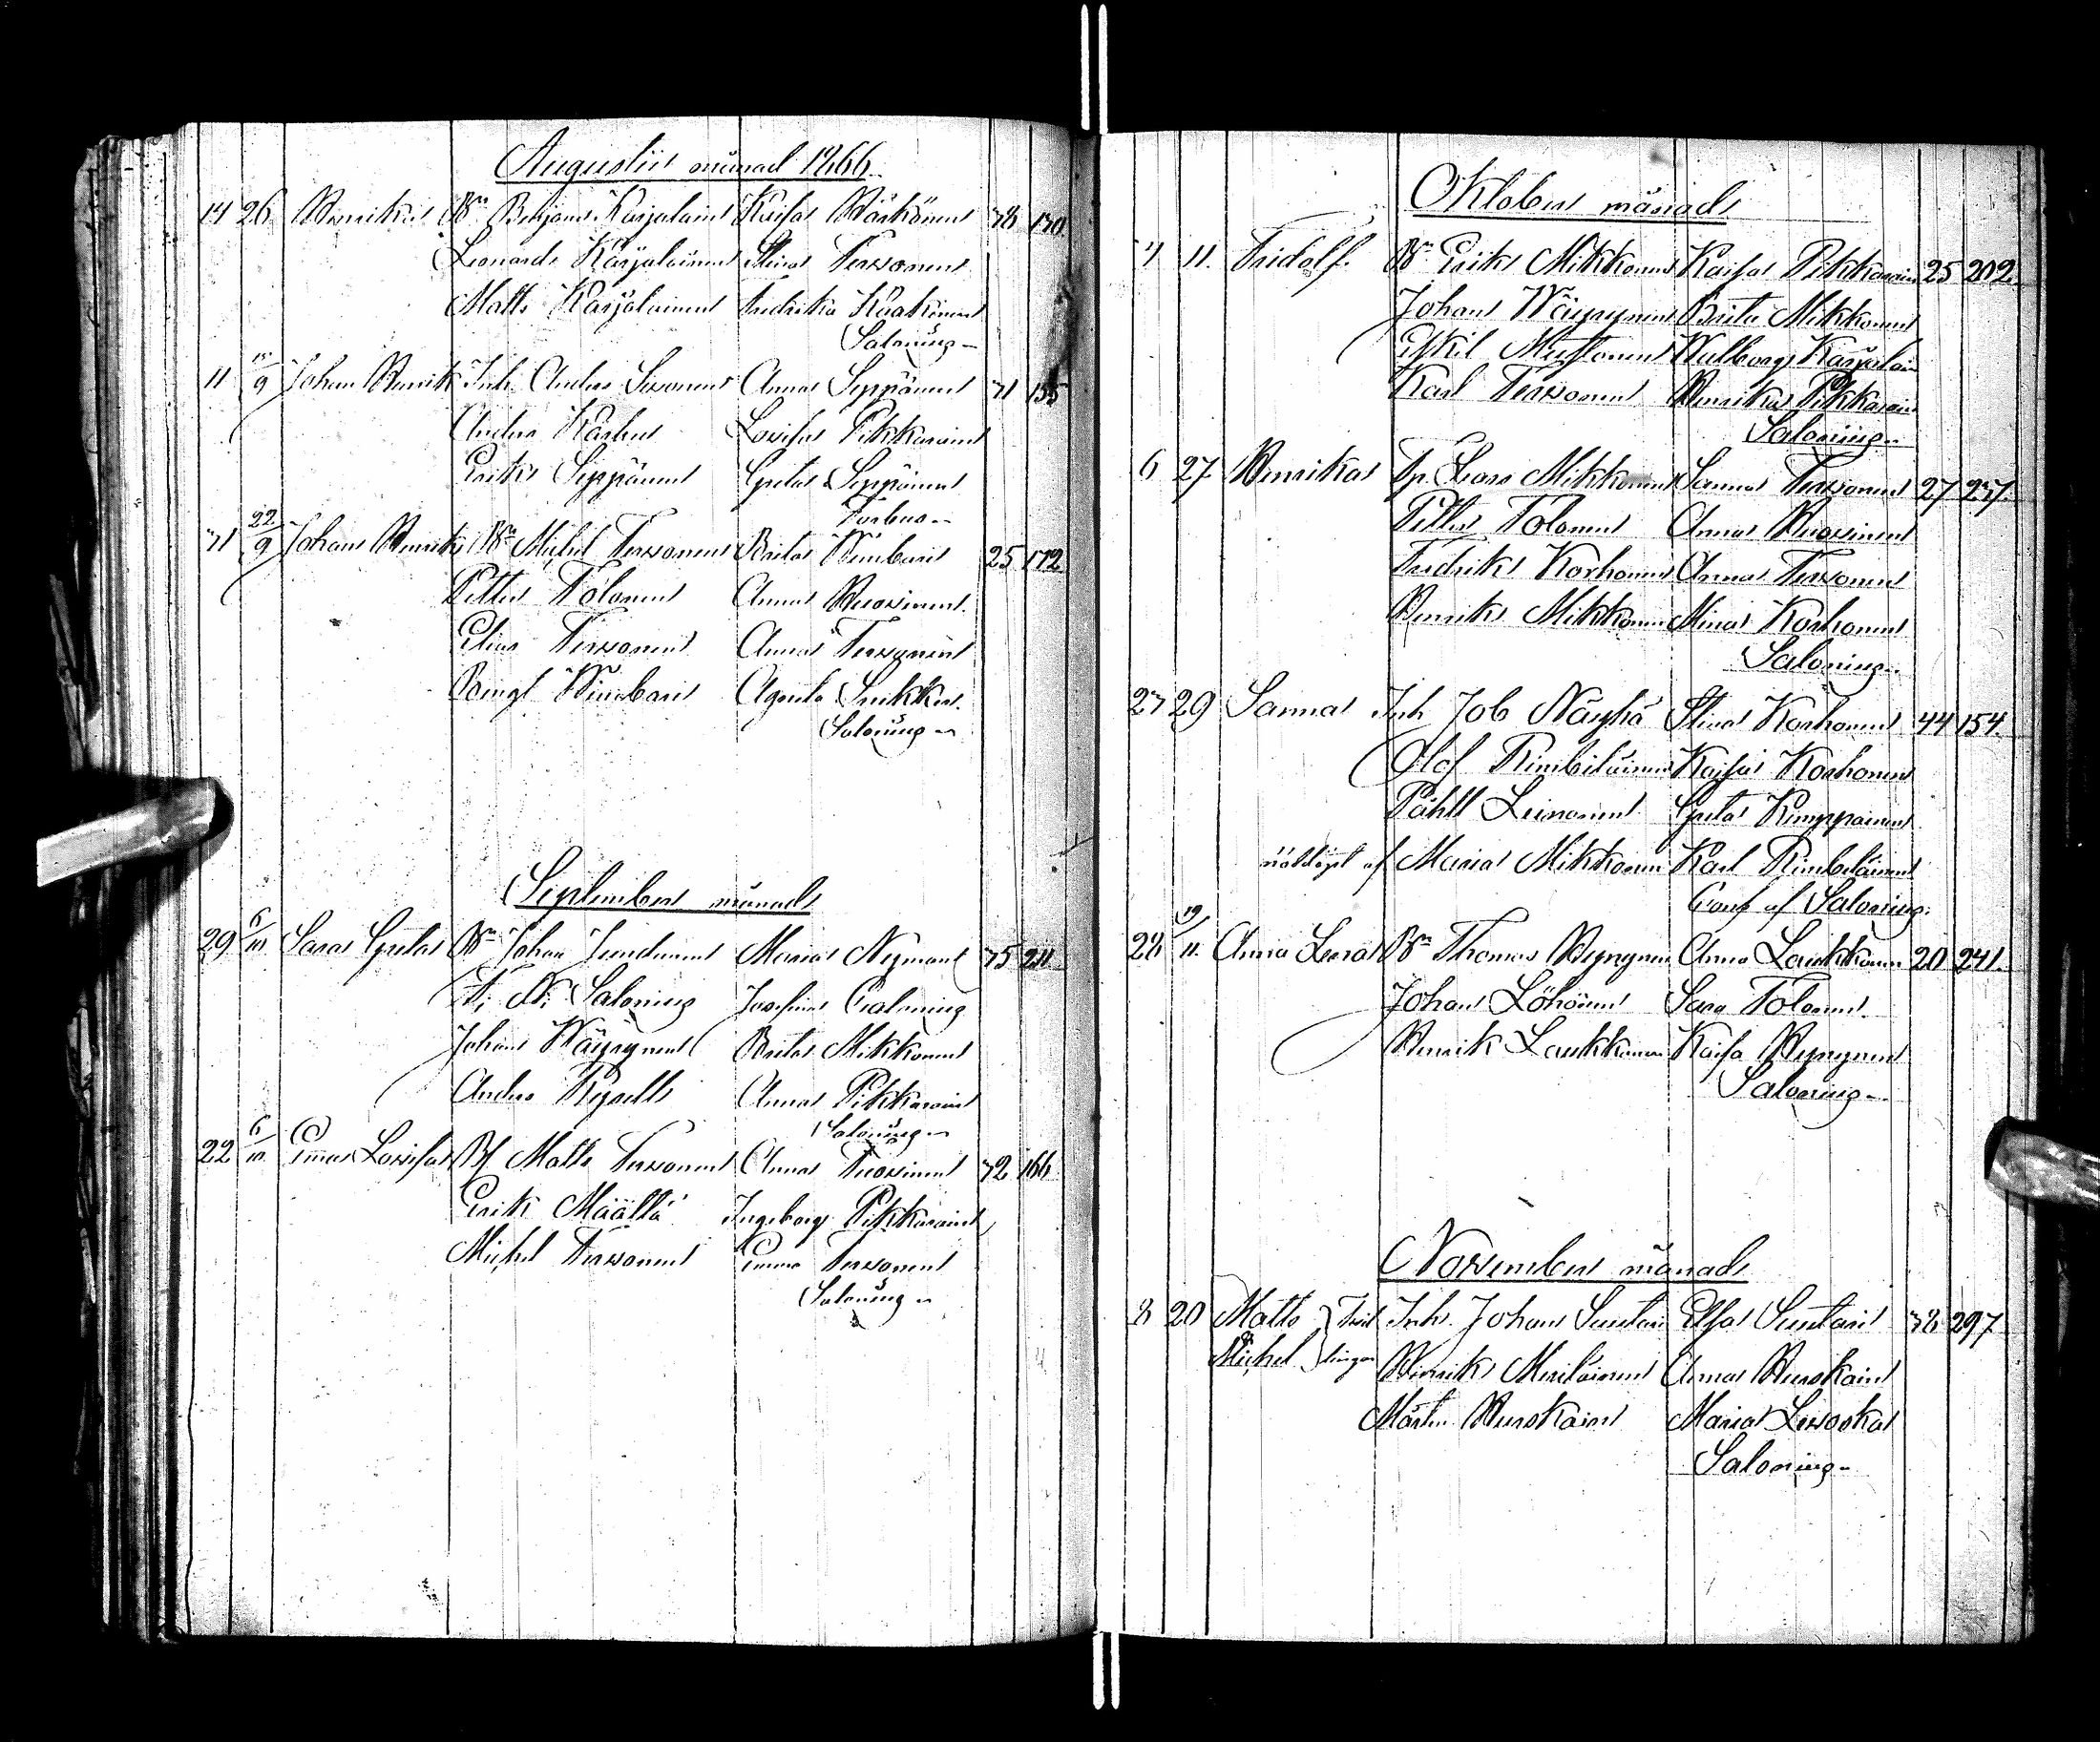 Augustii månad 1866.
14 26 Henrika Bn Benjam Karjalain Kaisa Härkönen 78 170.
Leonard Karjalainen Stina Terwonen
Matts Karjalainen Fredrika Kaakinen
Saloning
11 15/9 Johan Henrik Inh Anders Sironen Anna Seppänen 71 155
Anders Karhu Lovisa Pikkarainen
Erik Seppänen Greta Seppänen
Forbus
71 22/9 Johan Henrik Bn Michel Terwonen Brita Kimbari 25 172
Petter Tolonen Anna Huovinen
Elias Terwonen Anna Terwonen
Bengt Kimbari Agneta Sirkku
Saloning
September månad
29 6/10 Sara Greta Bn Johan Juntunen Maria Nyman 75 211
F. N. Saloning Josefina Calming
Johan Wäyrynen Brita Mikkonen
Anders Rysell Anna Pikkarainen
Saloning
22 6/10 Emma Lovisa Bf Matts Terwonen Anna Huovinen 72 166
Erik Määttä Ingeborg Pikkarainen
Michel Terwonen Emma Terwonen
Saloning
Oktober månad
4 11. Fridolf. Bn Erik Mikkonen Kaisa Pikkarain 25 202.
Johan Wäyrynen Brita Mikkonen
Eskil Mustonen Walborg Karjalain
Karl Terwonen Henrika Pikkarain
Saloning
6 27 Henrika Tp. Lars Mikkonen Sanna Terwonen 27 257.
Petter Tolonen Anna Huovinen
Fredrik Korhonen Anna Terwonen
Henrik Mikkonen Mina Korhonen
Saloning
27 29 Sanna Inh Job Näyhä Stina Korhonen 44 154.
Olof Kimbiläinen Kaisa Korhonen
Påhl Leinonen Greta Kemppainen
nöddöpt af Maria Mikkonen Karl Kimbiläinen
Conf af Saloning.
28 19/11. Anna Leena Bn Thomas Ryynynen Anna Laukkanen 20 241.
Johan Löhönen Sara Tolonen
Henrik Laukkanen Kaisa Ryynynen
Saloning
November månad
8 20 Matts & Michel } Tvillingar Inh. Johan Suutari Elsa Suutari 78 297
Henrik Meriläinen Anna Hurskain
Mårten Hurskain Maria Liwoska
Saloning